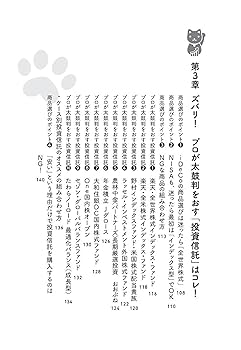 第3章 ズバリ! プロが太鼓判をおす「投資信託」はコレ!
商品選びのポイント❶ iDeCoの商品選びは迷ったら「全世界株式」 108
商品選びのポイント❷ NISAも、迷ったら最初は「インデックス型」でOK 110
商品選びのポイント❸ NGな商品の組み合わせ方 113
プロが太鼓判をおす投資信託❶ 楽天・全世界株式インデックス・ファンド
プロが太鼓判をおす投資信託❷ 楽天・全米株式インデックス・ファンド
プロが太鼓判をおす投資信託❸ 野村インデックスファンド・米国株式配当貴族
プロが太鼓判をおす投資信託 フィデリティ
プロが太鼓判をおす投資信託 農林中金パートナーズ長期厳選投資 おおぶね
プロが太鼓判をおす投資信託 年金積立 Jグロース 126
プロが太鼓判をおす投資信託 大和住銀DC国内株式ファンド 128
プロが太鼓判をおす投資信託 ファンド 130
プロが太鼓判をおす投資信託 セゾン・グローバルバランスファンド 132
プロが太鼓判をおす投資信託 たわらノーロード 最適化バランス(成長型) 134
ケース別投資信託のオススメの組み合わせ方 136
商品選びのポイント❹ 「安い」という理由だけで投資信託を購入するのは
NG 140